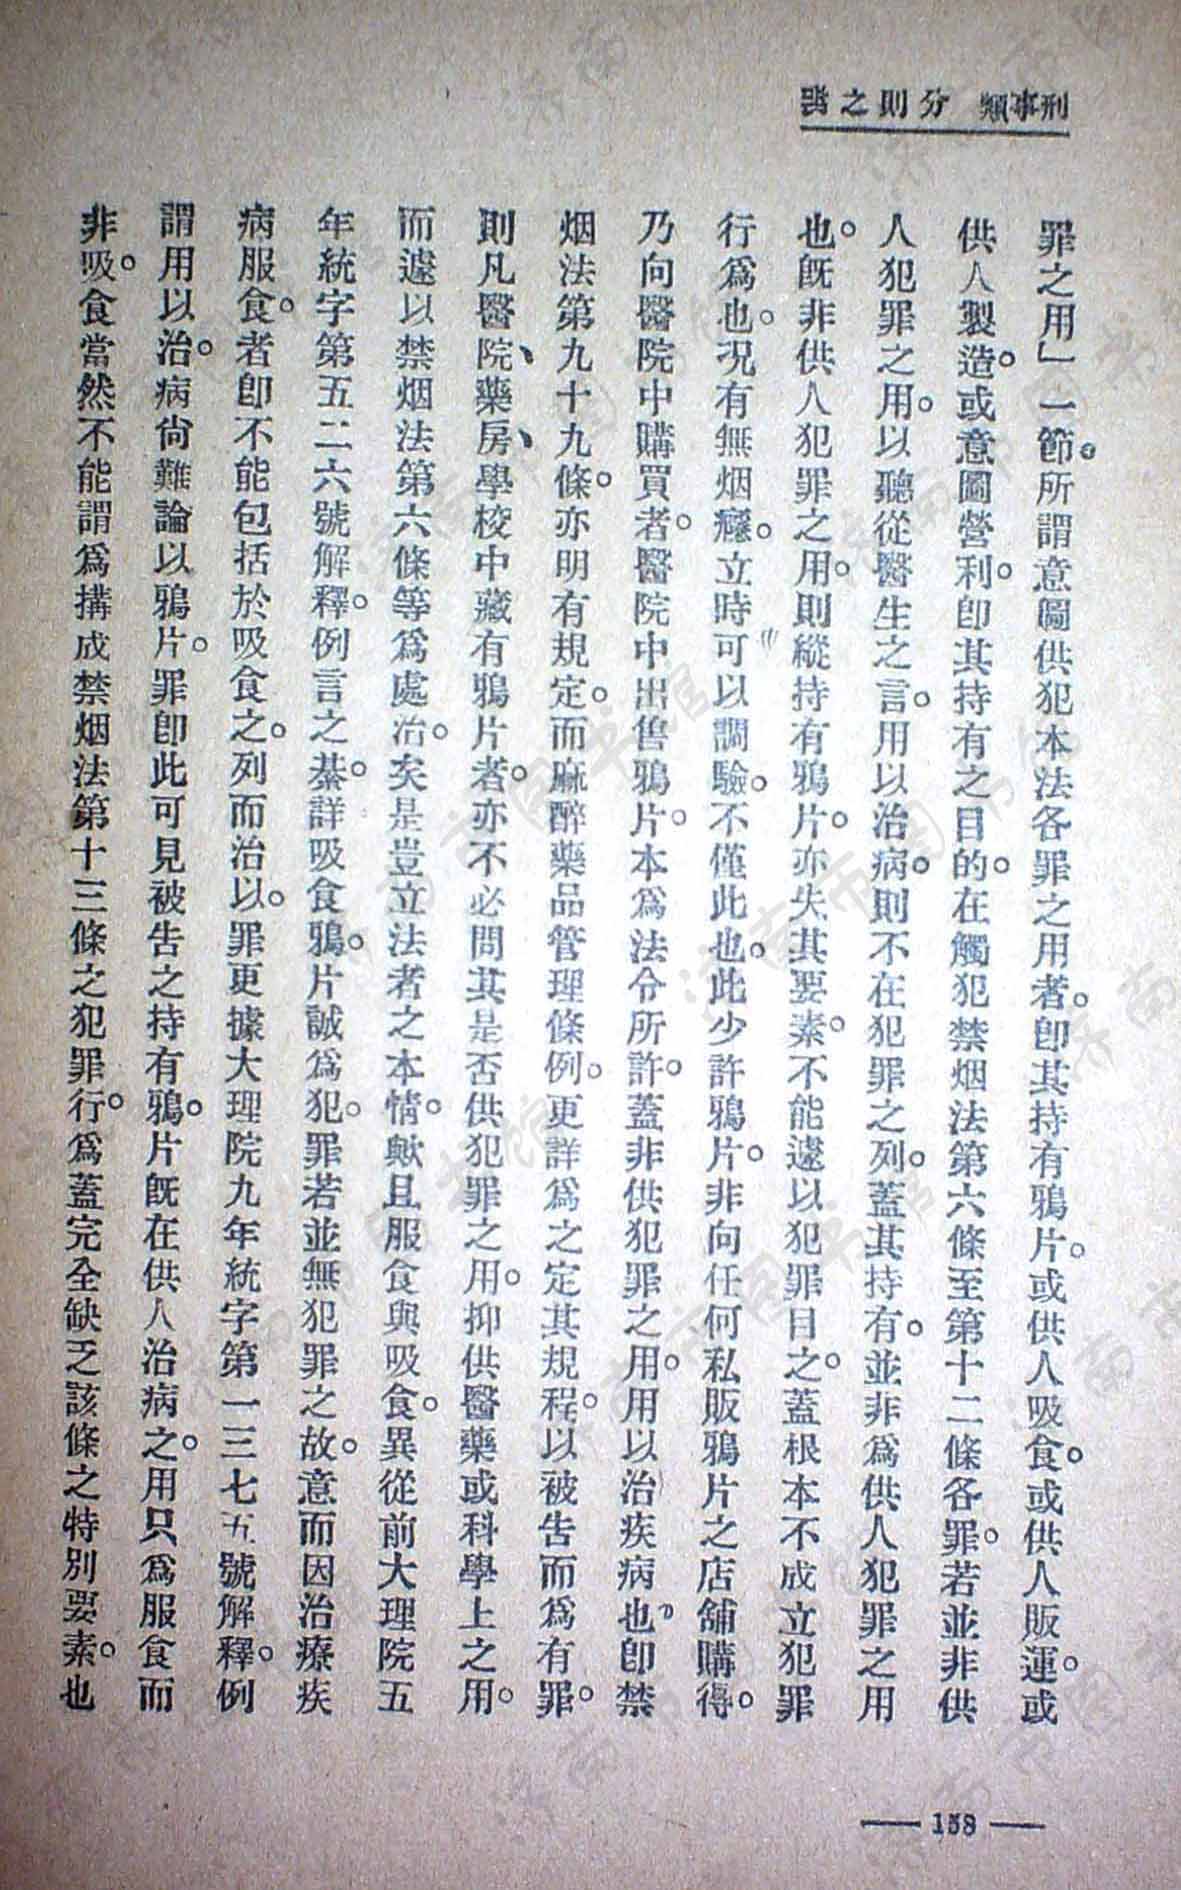 刑事類 分則之部
罪之用」一節。所謂意圖供犯本法各罪之用者。卽其持有鴉片。或供人吸食。或供人販運。或
供人製造。或意圖營利。卽其持有之目的。在觸犯禁烟法第六條至第十二條各罪。若並非供
人犯罪之用。以聽從醫生之言。用以治病。則不在犯罪之列。蓋其持有。並非爲供人犯罪之用
也。旣非供人犯罪之用。則縱持有鴉片。亦失其要素。不能遽以犯罪目之。蓋根本不成立犯罪
行爲也。况有無烟癮。立時可以調驗。不僅此也。此少許鴉片。非向任何私販鴉片之店舖購得。
乃向醫院中購買者。醫院中出售鴉片。本爲法令所許。蓋非供犯罪之用。用以治疾病也。卽禁
烟法第九十九條。亦明有規定。而麻醉藥品管理條例。更詳爲之定其規程。以被吿而爲有罪。
則凡醫院、藥房、學校中藏有鴉片者。亦不必問其是否供犯罪之用。抑供醫藥或科學上之用。
而遽以禁烟法第六條等爲處治。矣是豈立法者之本情。歟且服食與吸食。異從前大理院五
年統字第五二六號解釋。例言之綦。詳吸食鴉。片誠爲犯。罪若並無犯罪之故。意而因治療疾
病服食。者卽不能包括於吸食之。列而治以。罪更據大理院九年統字第一三七五號解釋。例
謂用以治。病尙難論以鴉片。罪卽此可見被吿之持有鴉。片旣在供人治病之。用只爲服食而
非吸。食當然不能謂爲搆成禁烟法第十三條之犯罪行。爲蓋完全缺乏該條之特別要素。也
— 158 —
济南市图书馆